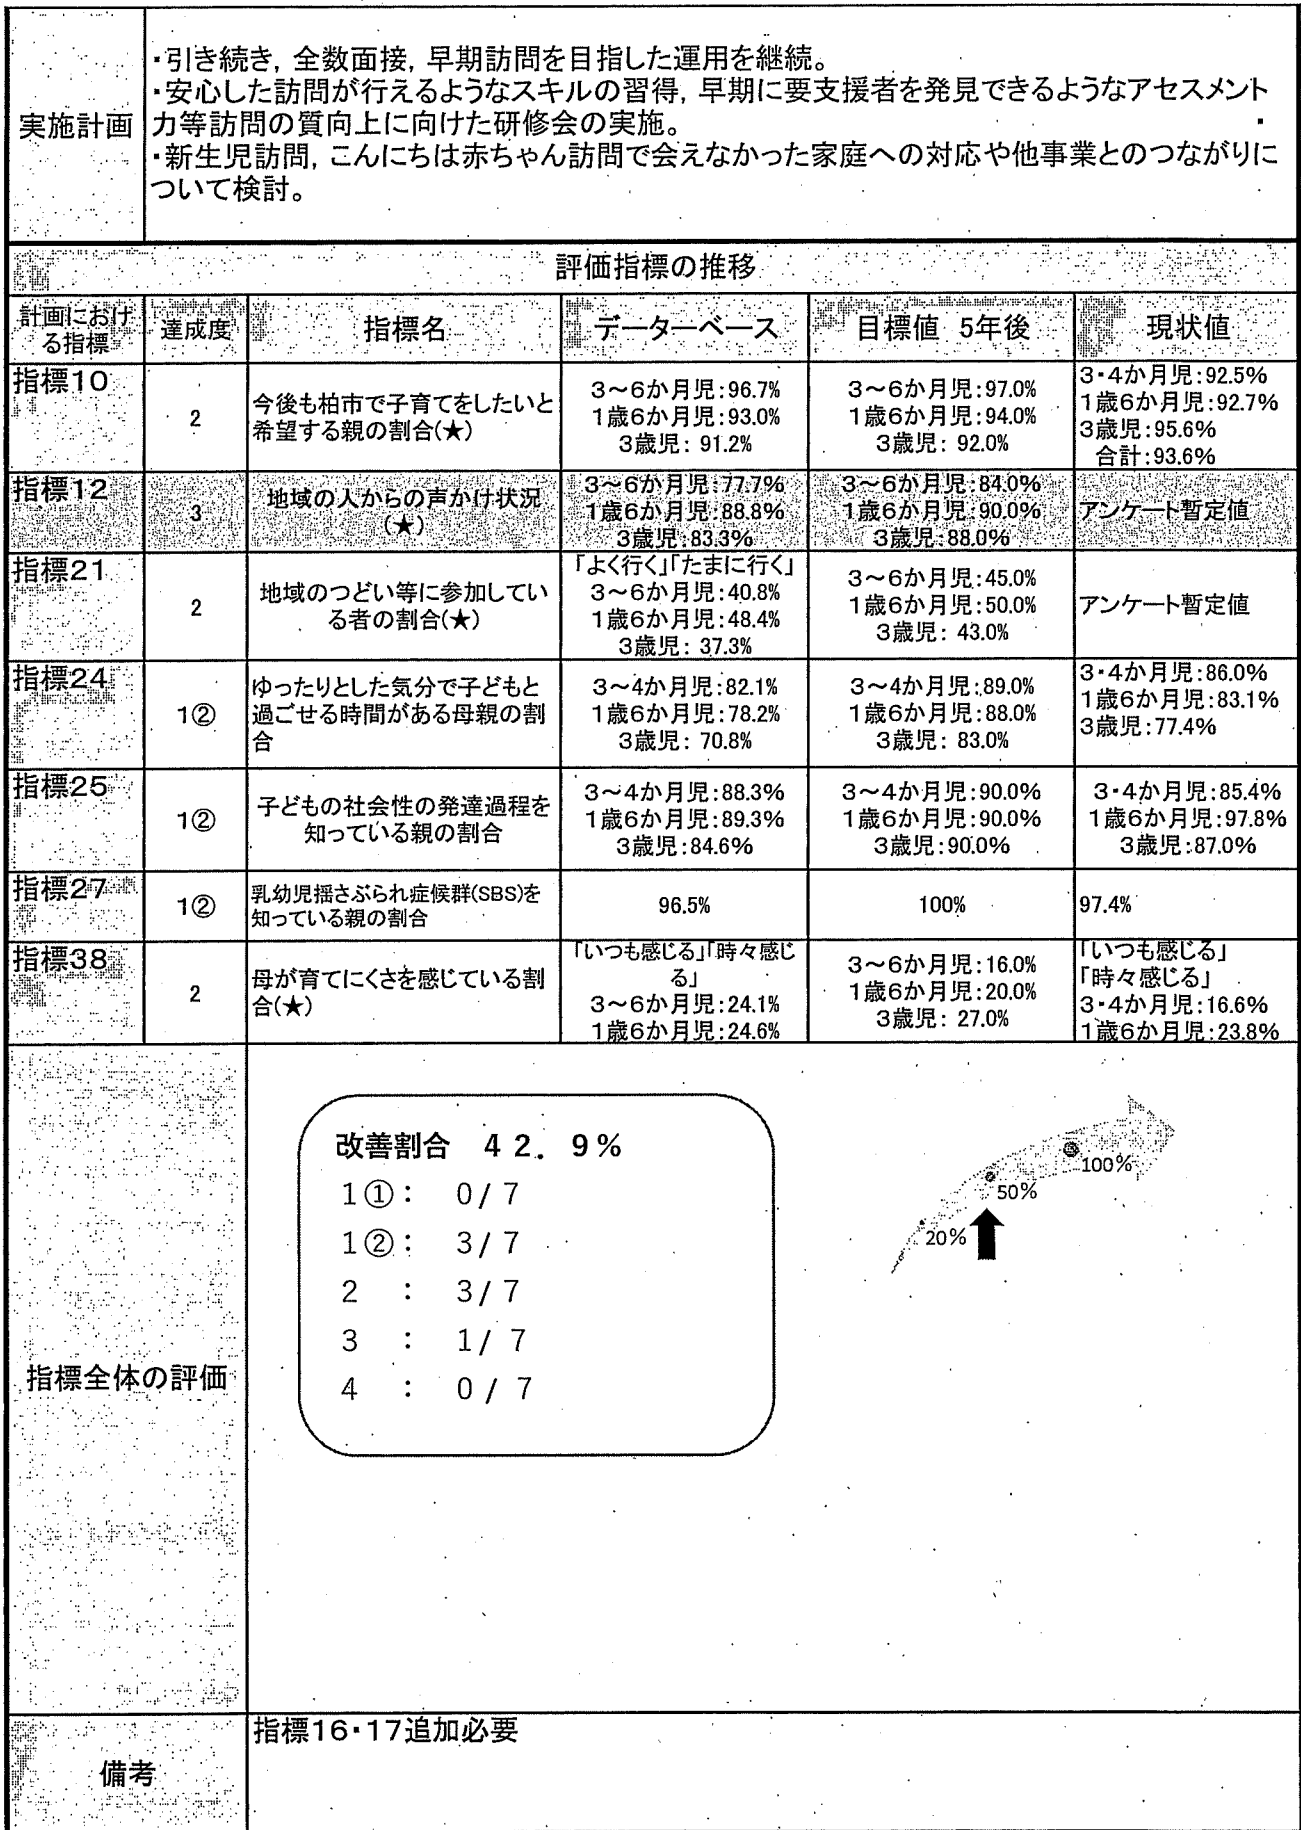 実施計画
・引き続き, 全数面接, 早期訪問を目指した運用を継続。
・安心した訪問が行えるようなスキルの習得, 早期に要支援者を発見できるようなアセスメント
力等訪問の質向上に向けた研修会の実施。
・新生児訪問, こんにちは赤ちゃん訪問で会えなかった家庭への対応や他事業とのつながりに
ついて検討。
評価指標の推移
計画におけ
る指標
達成度
指標名
データーベース
目標値 5年後
現状値
指標10
2
今後も柏市で子育てをしたいと
希望する親の割合(★)
3～6か月児:96.7%
1歳6か月児:93.0%
3歳児: 91.2%
3～6か月児:97.0%
1歳6か月児:94.0%
3歳児: 92.0%
3・4か月児:92.5%
1歳6か月児:92.7%
3歳児:95.6%
合計:93.6%
指標12
3
地域の人からの声かけ状況
(★)
3～6か月児:77.7%
1歳6か月児:88.8%
3歳児:83.3%
3～6か月児:84.0%
1歳6か月児:90.0%
3歳児:88.0%
アンケート暫定値
指標21
2
地域のつどい等に参加してい
る者の割合(★)
「よく行く」「たまに行く」
3～6か月児:40.8%
1歳6か月児:48.4%
3歳児: 37.3%
3～6か月児:45.0%
1歳6か月児:50.0%
3歳児: 43.0%
アンケート暫定値
指標24
1②
ゆったりとした気分で子どもと
過ごせる時間がある母親の割
合
3～4か月児:82.1%
1歳6か月児:78.2%
3歳児: 70.8%
3～4か月児:89.0%
1歳6か月児:88.0%
3歳児: 83.0%
3・4か月児:86.0%
1歳6か月児:83.1%
3歳児:77.4%
指標25
1②
子どもの社会性の発達過程を
知っている親の割合
3～4か月児:88.3%
1歳6か月児:89.3%
3歳児:84.6%
3～4か月児:90.0%
1歳6か月児:90.0%
3歳児:90.0%
3・4か月児:85.4%
1歳6か月児:97.8%
3歳児:87.0%
指標27
1②
乳幼児揺さぶられ症候群(SBS)を
知っている親の割合
96.5%
100%
97.4%
指標38
2
母が育てにくさを感じている割
合(★)
「いつも感じる」「時々感じ
る」
3～6か月児:24.1%
1歳6か月児:24.6%
3～6か月児:16.0%
1歳6か月児:20.0%
3歳児: 27.0%
「いつも感じる」
「時々感じる」
3・4か月児:16.6%
1歳6か月児:23.8%
指標全体の評価
改善割合 42.9%
1①: 0/7
1②: 3/7
2 : 3/7
3 : 1/7
4 : 0/7
100%
50%
20%
備考
指標16・17追加必要